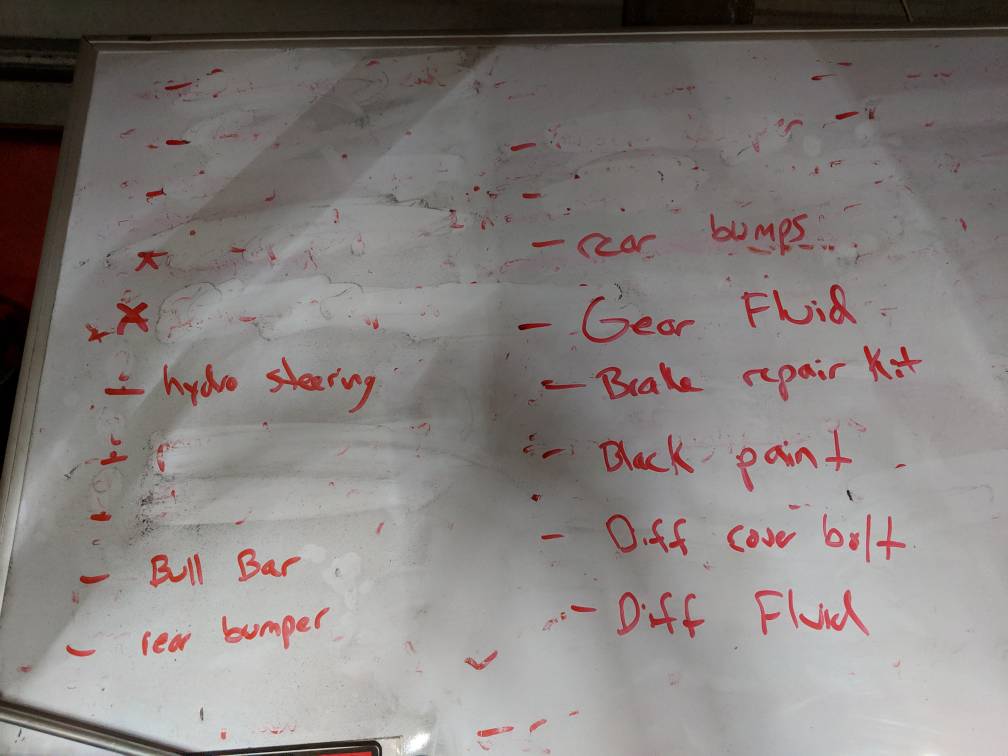 - hydro steering
- Bull Bar
- rear bumper
- rear bumps
- Gear Fluid
- Brake repair Kit
- Black paint
- Diff cover bolt
- Diff Fluid